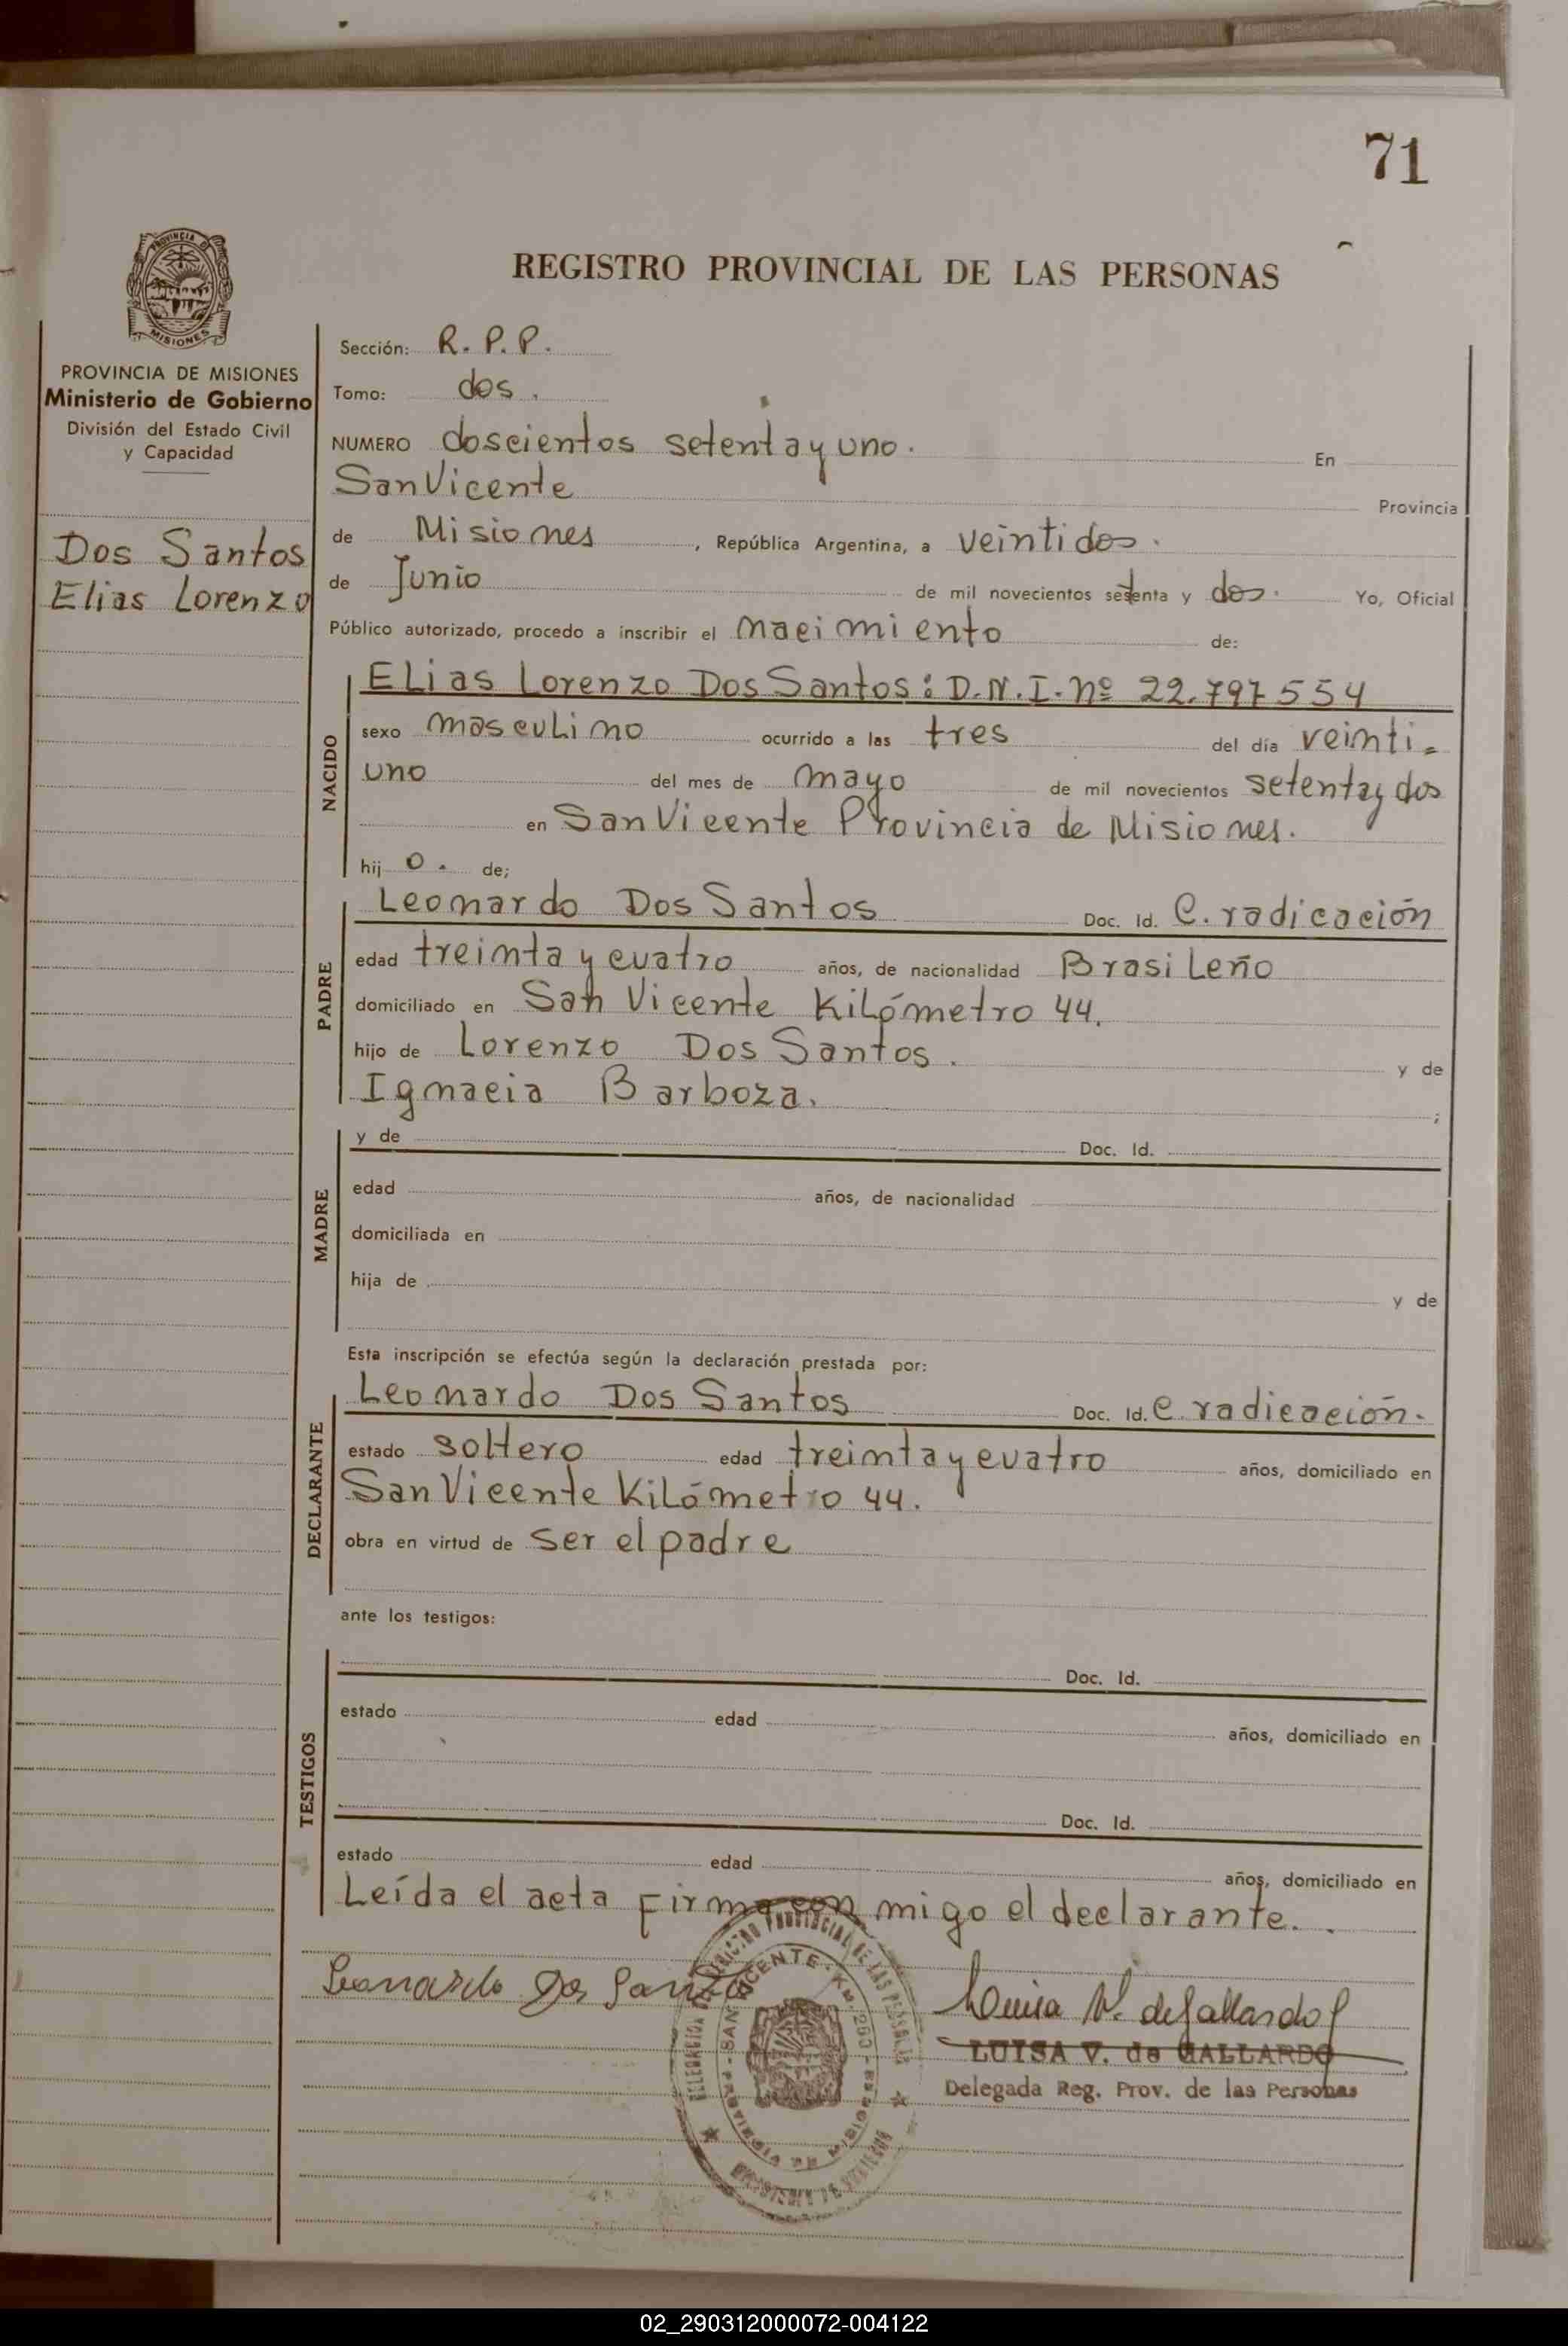 71
REGISTRO PROVINCIAL DE LAS PERSONAS
PROVINCIA DE MISIONES
PROVINCIA DE MISIONES
Ministerio de Gobierno
División del Estado Civil
y Capacidad
Dos Santos
Elias Lorenzo
Sección: R. P. P.
Tomo: dos.
NUMERO doscientos setenta y uno. En
San Vicente Provincia
de Misiones, República Argentina, a veintidos.
de Junio de mil novecientos setenta y dos. Yo, Oficial
Público autorizado, procedo a inscribir el nacimiento de:
NACIDO
Elias Lorenzo Dos Santos: D.N.I. nº 22.797554
sexo masculino ocurrido a las tres del día veinti-
uno del mes de mayo de mil novecientos setenta y dos
en San Vicente Provincia de Misiones.
hij o. de;
PADRE
Leonardo Dos Santos Doc. Id. C. radicación
edad treinta y cuatro años, de nacionalidad Brasileño
domiciliado en San Vicente Kilómetro 44.
hijo de Lorenzo Dos Santos. y de
Ignacia Barboza. ;
MADRE
y de Doc. Id.
edad años, de nacionalidad
domiciliada en
hija de y de
Esta inscripción se efectúa según la declaración prestada por:
DECLARANTE
Leonardo Dos Santos Doc. Id. C. radicación.
estado soltero edad treinta y cuatro años, domiciliado en
San Vicente Kilómetro 44.
obra en virtud de ser el padre
ante los testigos:
TESTIGOS
Doc. Id.
estado edad años, domiciliado en
Doc. Id.
estado edad años, domiciliado en
Leída el acta firma con migo el declarante.
Leonardo Dos Santos
Luisa V. de Gallardo
LUISA V. de GALLARDO
Delegada Reg. Prov. de las Personas
REGISTRO PROVINCIAL DE LAS PERSONAS
SAN VICENTE - KM. 260
MISIONES
02_290312000072-004122